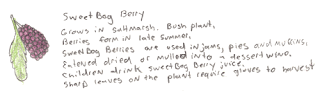 Sweet Bog Berry
Grows in saltmarsh. Bush plant,
Berries form in late summer,
Sweet Bog Berries are used in jams, pies and muffins,
Enjoyed dried or mulled into a dessert wine.
Children drink sweet Bog Berry juice.
Sharp leaves on the plant require gloves to harvest